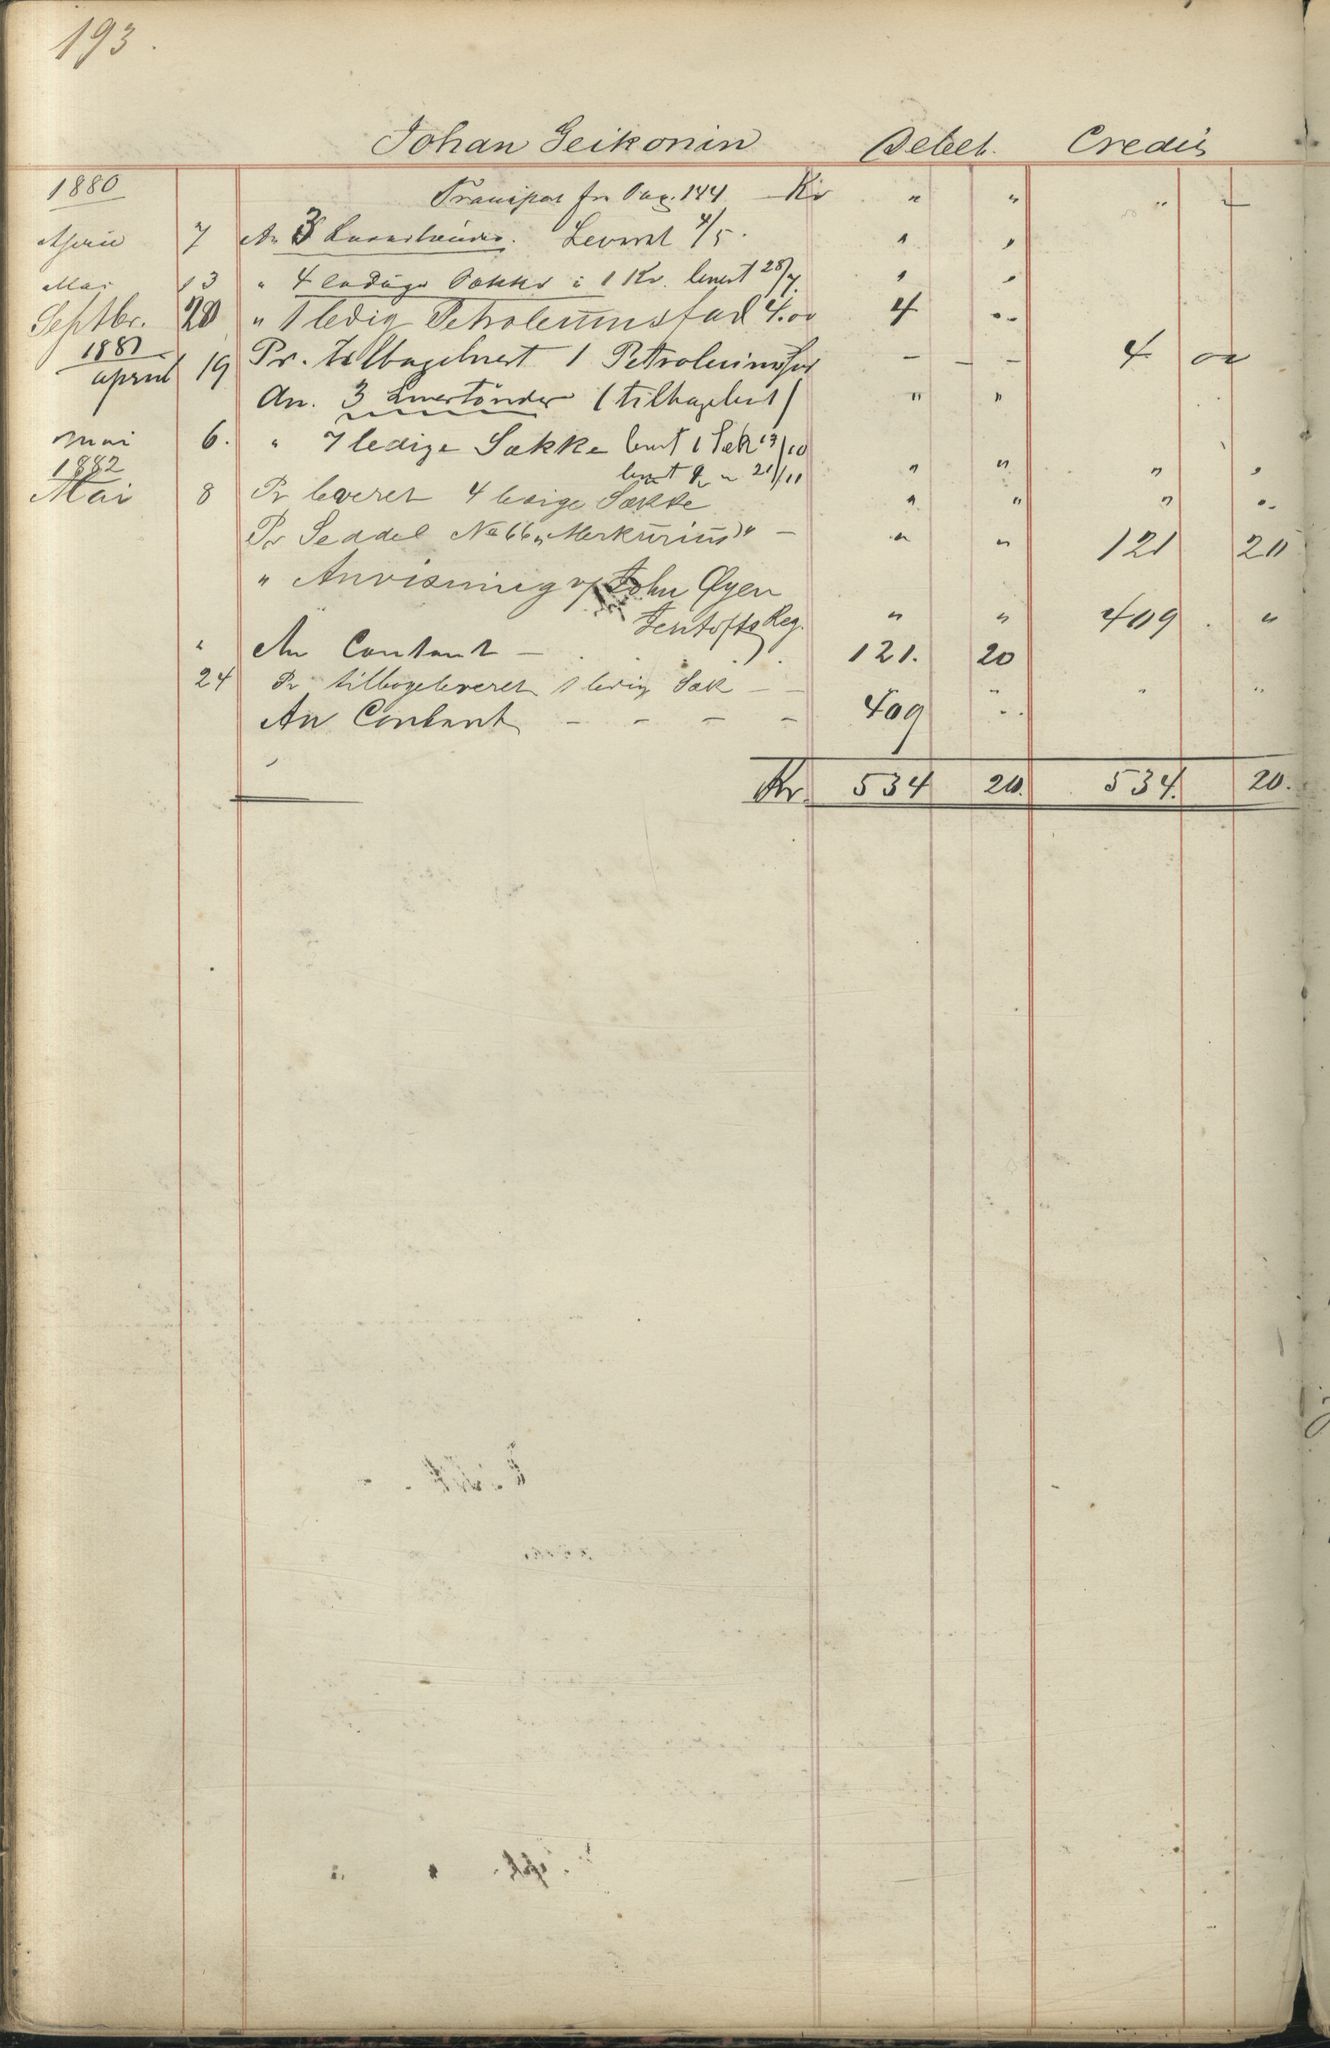 193.
Johan Geikonin Debet. Credit
1880 Transport fra Pag. 144 Kr " " " —
April 7 An 3 Levert 4/5. " "
Mai 13 " 4 ledige Sække à 1 Kr. levert 28/7. " "
Septbr. 20 " 1 ledig Petroleumsfad 4.00 4 --
1881
april 19 Pr. tilbagelevert 1 Petroleumsfad — — — 4 00
An. 3 Levertönder (tilbagelevert) " "
mai 6. " 7 ledige Sække levert 1 Sæk 13/10
levert 2 " 21/11 " " " "
1882
Mai 8 Pr leveret 4 ledige Sække " " " "
Pr Seddel No 66 „Merkurius" — " " 121 20
" Anvisning p/ John Øyen
Jentofts Reg. " " 409. "
" An Contant — 121. 20
24 Pr tilbageleveret 1 ledig Sæk — — " " " "
An Contant — — — — 409 --
Kr. 534 20. 534. 20.